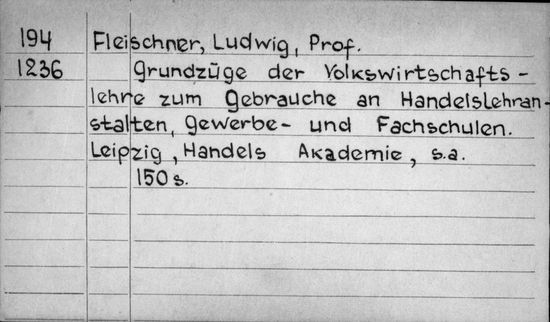 194 Fleischner, Ludwig, Prof.
1236 Grundzüge der Volkswirtschafts-
lehre zum Gebrauche an Handelslehran-
stalten, Gewerbe- und Fachschulen.
Leipzig, Handels Akademie, s.a.
150 s.